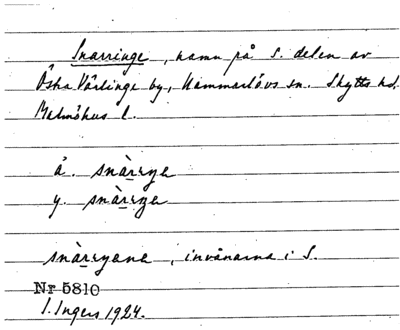 Snarringe, namn på S. delen av
Östra Värlinge by, Hammarlövs sn. Skytts hd.
Malmöhus l.
ä. snàrɩŋe
y. snàrɩŋe
snàrɩŋana, invånarna i S.
Nr 5810
I. Ingers 1924.